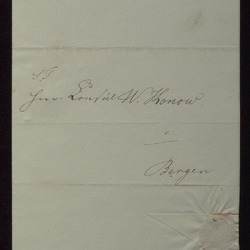 S. T.
Herr Consul W. Konow
i
Bergen